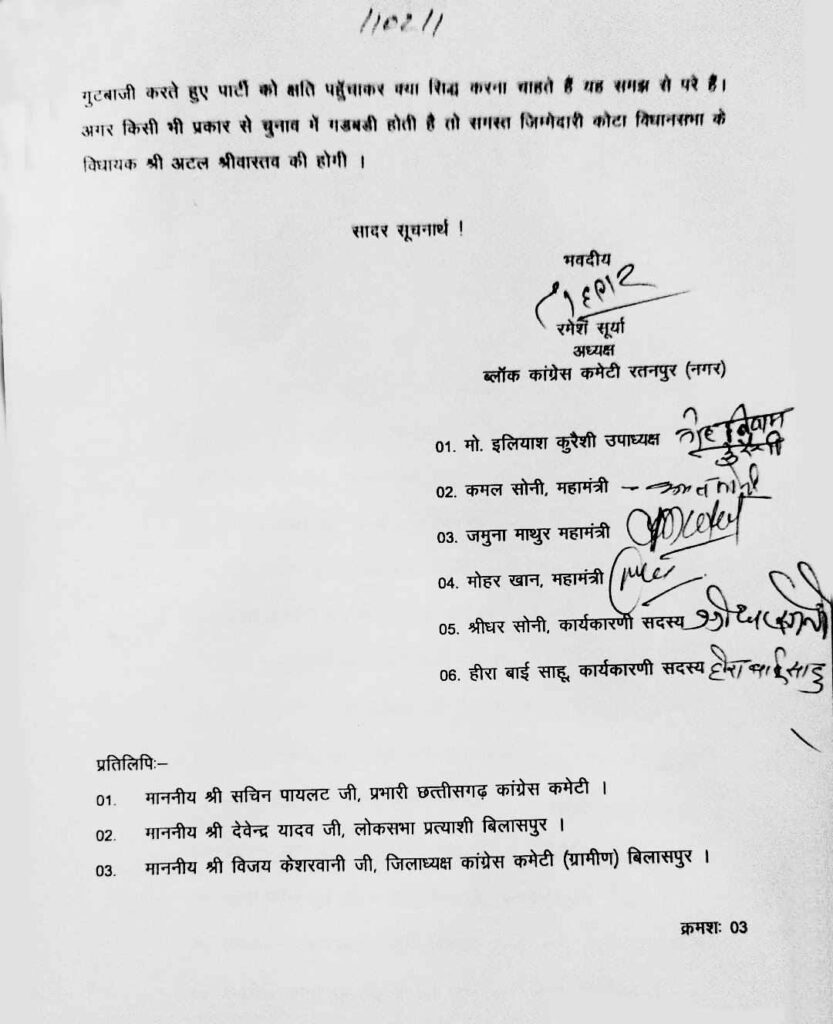 //02//
गुटबाजी करते हुए पार्टी को क्षति पहुँचाकर क्या सिद्ध करना चाहते हैं यह समझ से परे है।
अगर किसी भी प्रकार से चुनाव में गडबडी होती है तो समस्त जिम्मेदारी कोटा विधानसभा के
विधायक श्री अटल श्रीवास्तव की होगी ।
सादर सूचनार्थ !
भवदीय
रमेश सूर्या
अध्यक्ष
ब्लॉक कांग्रेस कमेटी रतनपुर (नगर)
01. मो. इलियाश कुरैशी उपाध्यक्ष
02. कमल सोनी, महामंत्री –
03. जमुना माथुर महामंत्री
04. मोहर खान, महामंत्री
05. श्रीधर सोनी, कार्यकारणी सदस्य श्रीधर सोनी
06. हीरा बाई साहू, कार्यकारणी सदस्य हीरा बाई साहु
प्रतिलिपिः–
01. माननीय श्री सचिन पायलट जी, प्रभारी छत्तीसगढ़ कांग्रेस कमेटी ।
02. माननीय श्री देवेन्द्र यादव जी, लोकसभा प्रत्याशी बिलासपुर ।
03. माननीय श्री विजय केशरवानी जी, जिलाध्यक्ष कांग्रेस कमेटी (ग्रामीण) बिलासपुर ।
क्रमशः 03